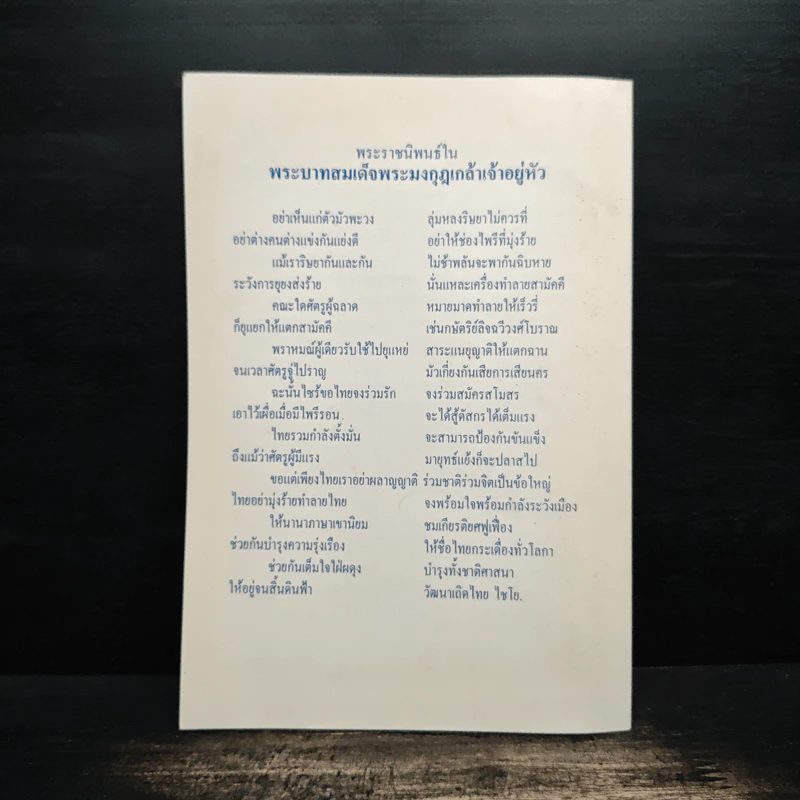 พระราชนิพนธ์ใน
พระบาทสมเด็จพระมงกุฎเกล้าเจ้าอยู่หัว
อย่าเห็นแก่ตัวมัวพะวง ลุ่มหลงริษยาไม่ควรที่
อย่าต่างคนต่างแข่งกันแย่งดี อย่าให้ช่องไพรีที่มุ่งร้าย
แม้เราริษยากันและกัน ไม่ช้าพลันจะพากันฉิบหาย
ระวังการยุยงส่งร้าย นั่นแหละเครื่องทำลายสามัคคี
คณะใดศัตรูผู้ฉลาด หมายมาดทำลายให้เร็วรี่
ก็ยุแยกให้แตกสามัคคี เช่นกษัตริย์ลิจฉวีวงศ์โบราณ
พราหมณ์ผู้เดียวรับใช้ไปยุแหย่ สาระแนยุญาติให้แตกฉาน
จนเวลาศัตรูจู่ไปราญ มัวเกี่ยงกันเสียการเสียนคร
ฉะนั้นไซร้ขอไทยจงร่วมรัก จงร่วมสมัครสโมสร
เอาไว้เผื่อเมื่อมีไพรีรอน . จะได้สู้ดัสกรได้เต็มแรง
ไทยรวมกำลังตั้งมั่น จะสามารถป้องกันขันแข็ง
ถึงแม้ว่าศัตรูผู้มีแรง มายุทธ์แย้งก็จะปลาสไป
ขอแต่เพียงไทยเราอย่าผลาญญาติ ร่วมชาติร่วมจิตเป็นข้อใหญ่
ไทยอย่ามุ่งร้ายทำลายไทย จงพร้อมใจพร้อมกำลังระวังเมือง
ให้นานาภาษาเขานิยม ชมเกียรติยศฟูเฟื่อง
ช่วยกันบำรุงความรุ่งเรือง ให้ชื่อไทยกระเดื่องทั่วโลกา
ช่วยกันเต็มใจใฝ่ผดุง บำรุงทั้งชาติศาสนา
ให้อยู่จนสิ้นดินฟ้า วัฒนาเถิดไทย ไชโย.